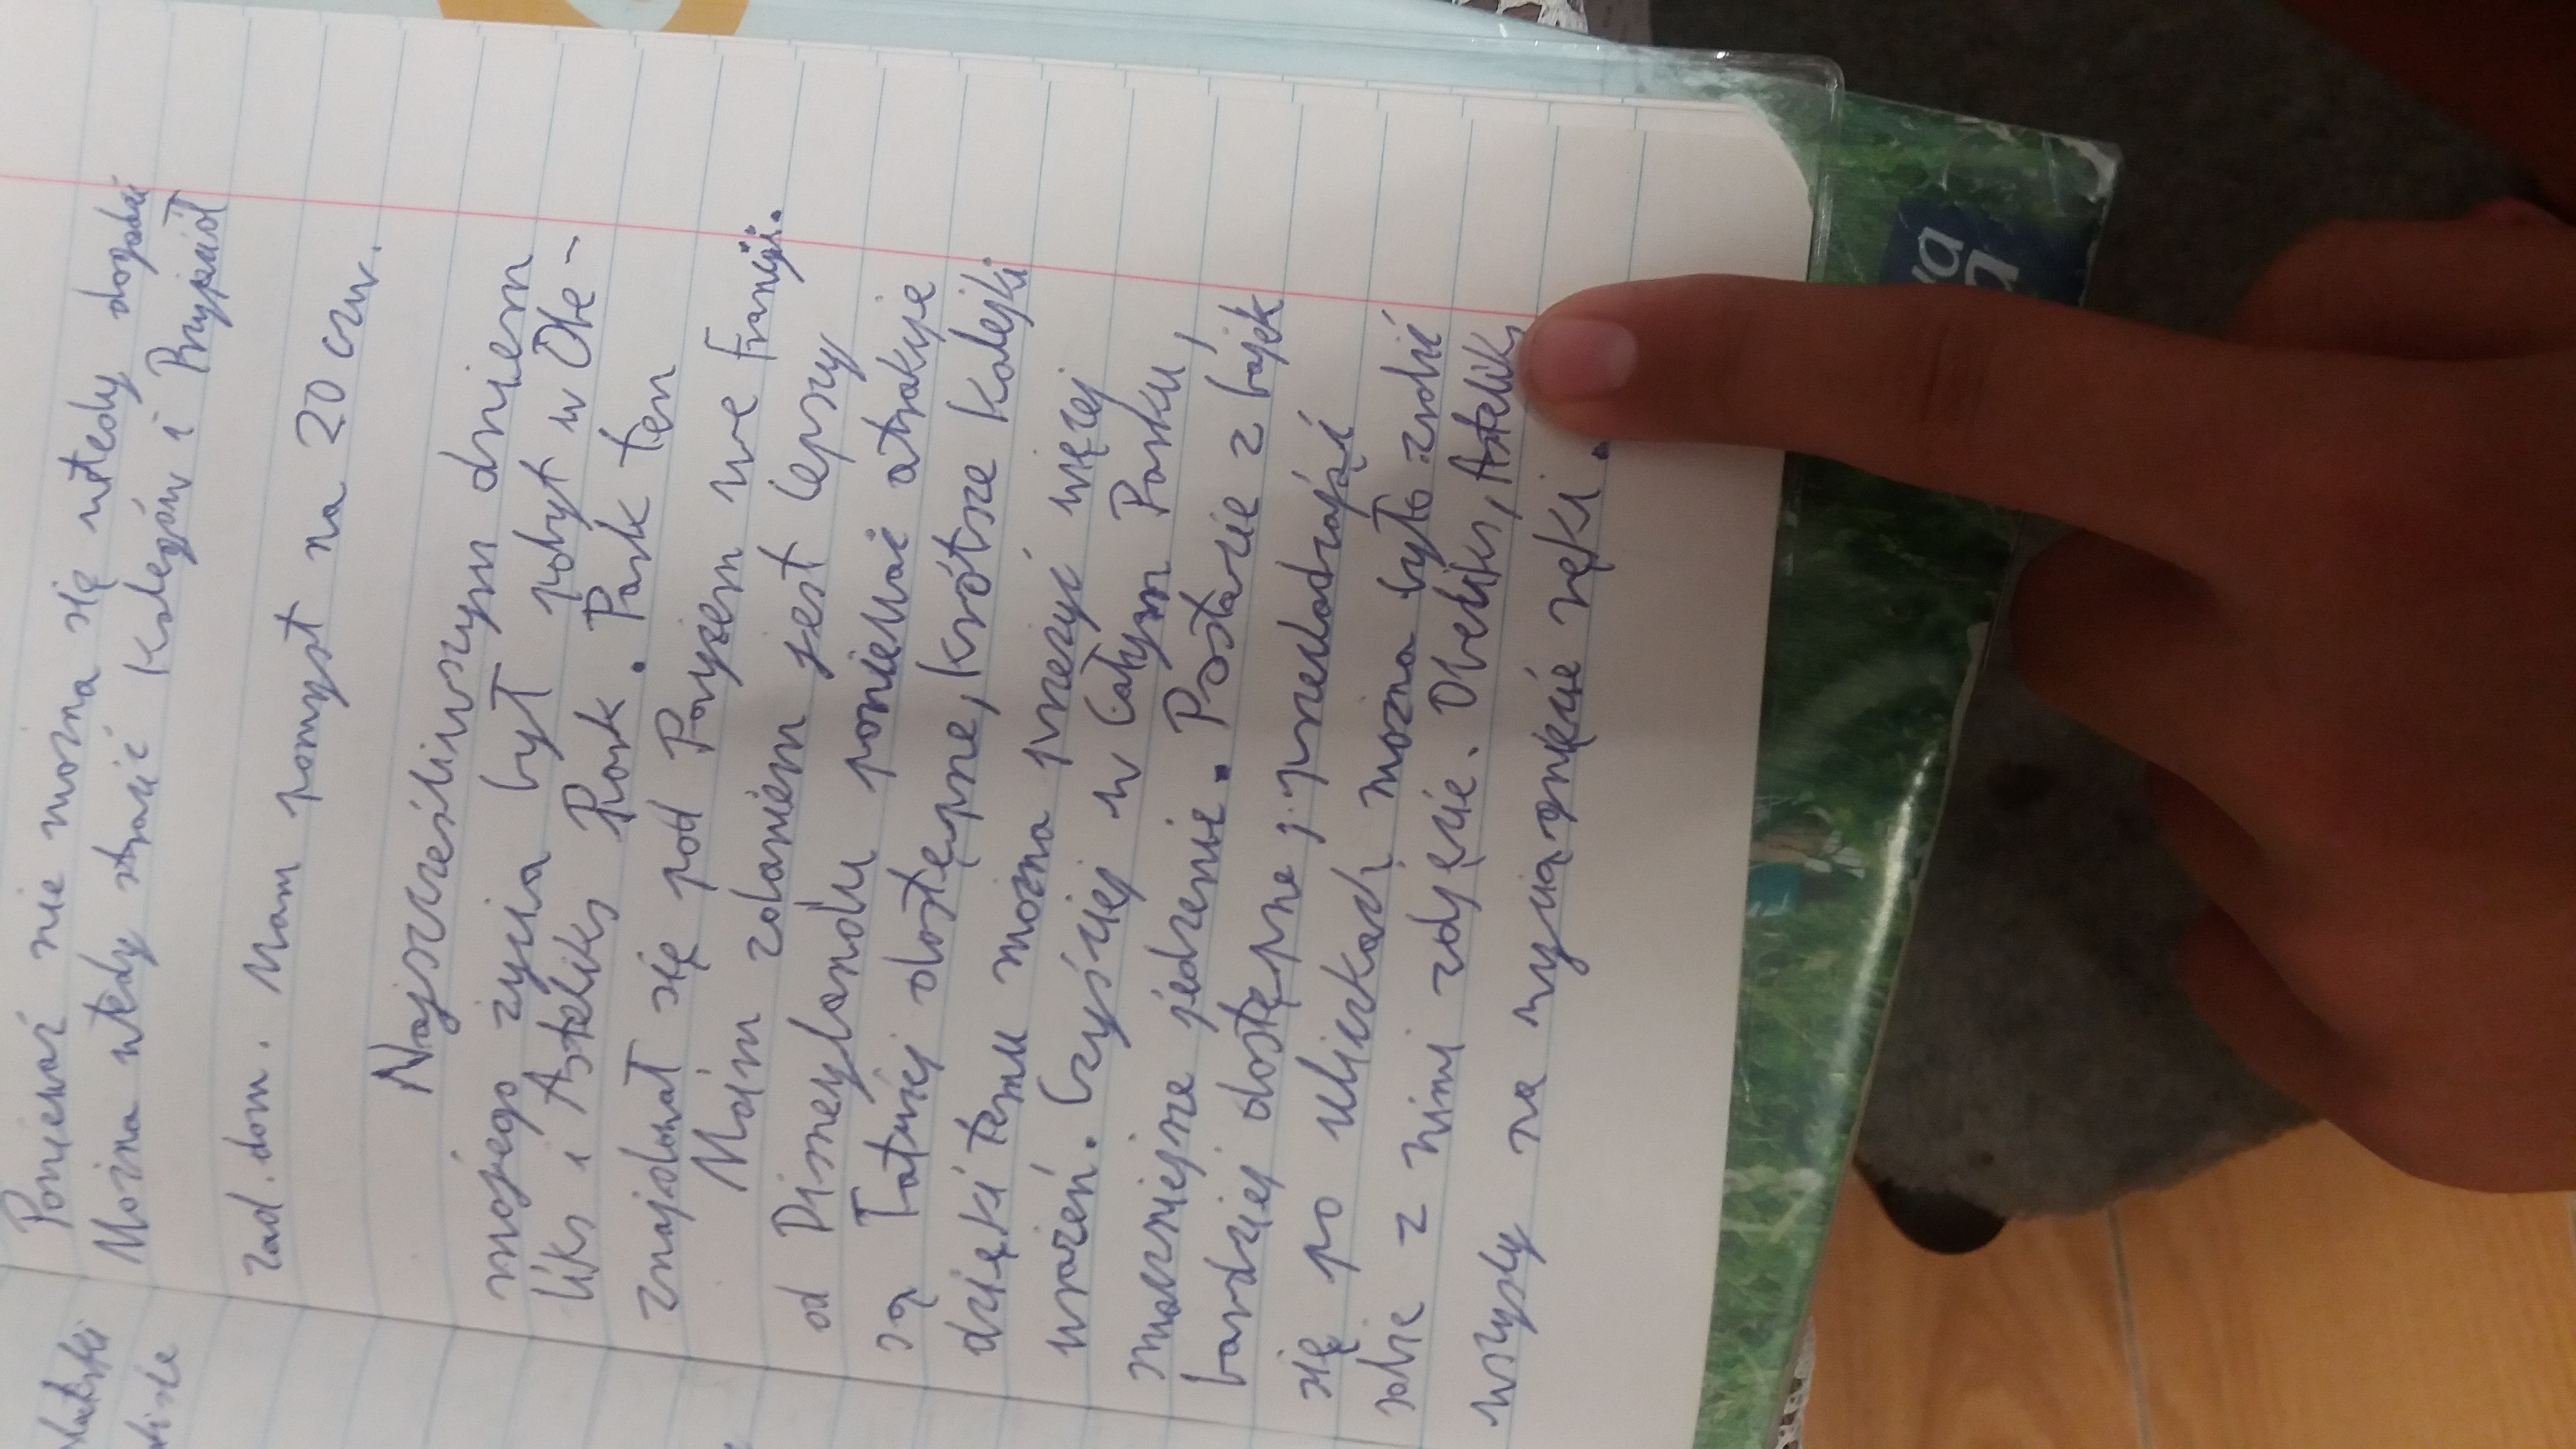 Ponieważ nie można się wtedy dogadać
Można wtedy stracić kolegów i Przyjaciół
zad. dom. Mam pomysł na 20 czw.
Najszczęśliwszym dniem
mojego życia był pobyt w Obe-
liks i Asteliks Park. Park ten
znajdował się pod Paryżem we Francji.
Moim zdaniem jest lepszy
od Disneylandu ponieważ atrakcje
są łatwiej dostępne, krótsze kolejki
dzięki temu można przeżyć więcej
wrażeń. Czyściej w całym Parku,
smaczniejsze jedzenie. Postacie z bajek
bardziej dostępne j. przechadzają
się po uliczkach można było zrobić
sobie z nimi zdjęcie. Obeliks, Asteliks
wszyscy na wyciągnięcie ręki.